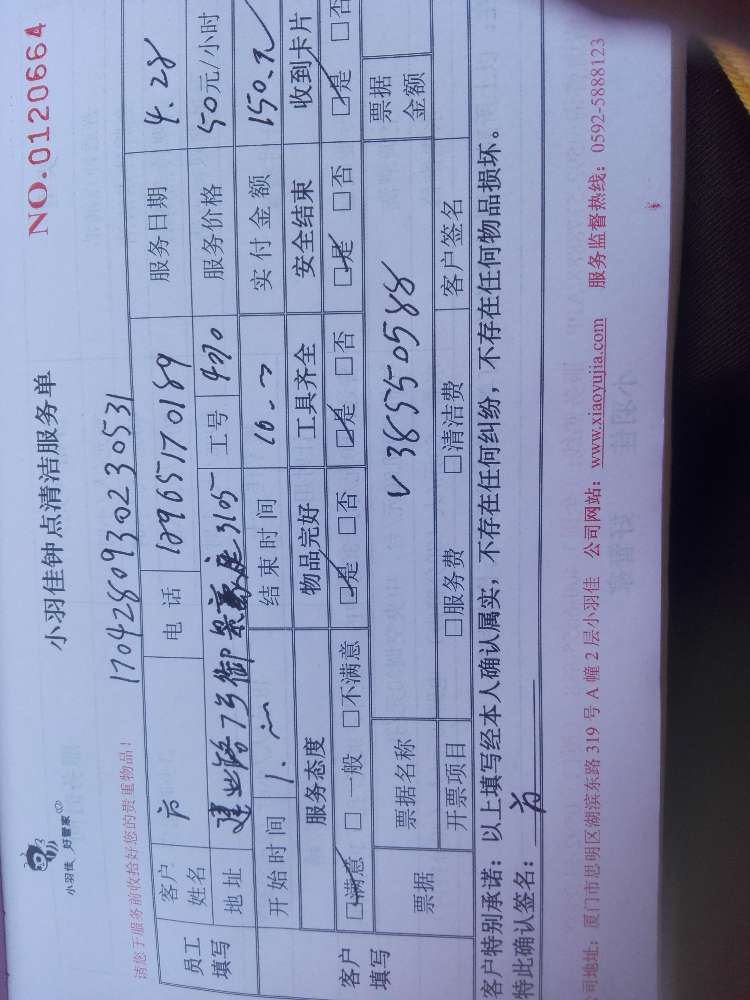 小羽佳 好管家
小羽佳钟点清洁服务单
NO.0120664
请您于服务前收拾好您的贵重物品！
1704280930230531
员工填写
客户姓名
电话
服务日期 4.28
地址 建业路7号御景豪庭3105 工号 4070 服务价格 50元/小时
开始时间
结束时间
实付金额 150.元
客户填写
服务态度 物品完好 工具齐全 安全结束 收到卡片
☑满意 □一般 □不满意 ☑是 □否 ☑是 □否 ☑是 □否 ☑是 □否
票据 票据名称 V3855505 票据金额
开票项目 □服务费 □清洁费 客户签名
客户特别承诺：以上填写经本人确认属实，不存在任何纠纷，不存在任何物品损坏。
特此确认签名：
司地址：厦门市思明区湖滨东路 319 号 A 幢 2 层小羽佳 公司网站：www.xiaoyujia.com 服务监督热线：0592-5888123